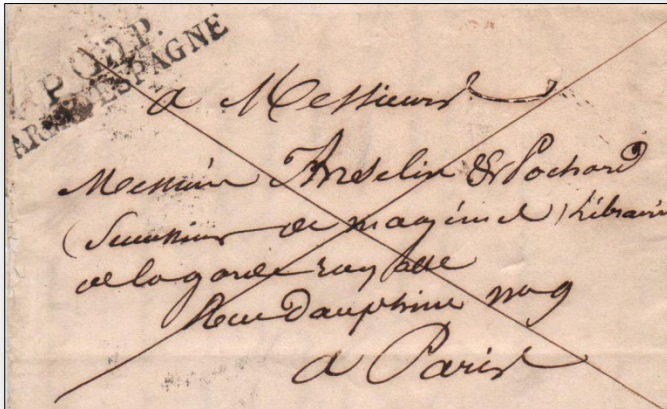 P.D.P.
ARM. D'ESPAGNE
a Messieurs
Messieurs Anselin & Pochard
(Successeurs de Magimel) Libraires
de la garde royalle
Rue Dauphine no 9
a Paris